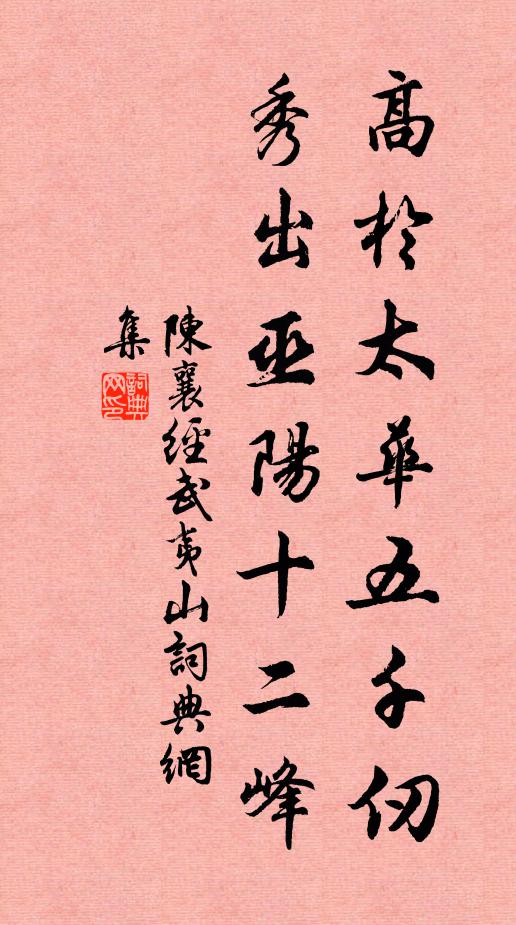 高於太華五千仞
秀出巫陽十二峰
陳襄經武夷山詞典網
集
詞典网印